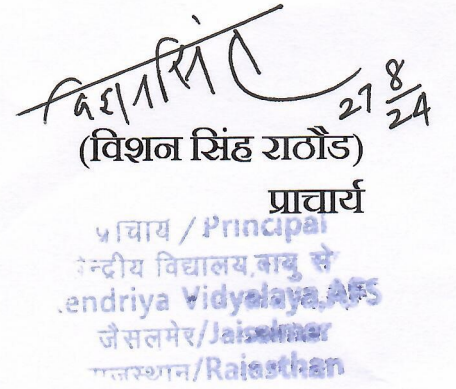 विशनसिंह
27 8/24
(विशन सिंह राठौड)
प्राचार्य
प्राचार्य / Principal
केन्द्रीय विद्यालय,वायु से
Kendriya Vidyalaya,AFS
जैसलमेर/Jaisalmer
राजस्थान/Rajasthan